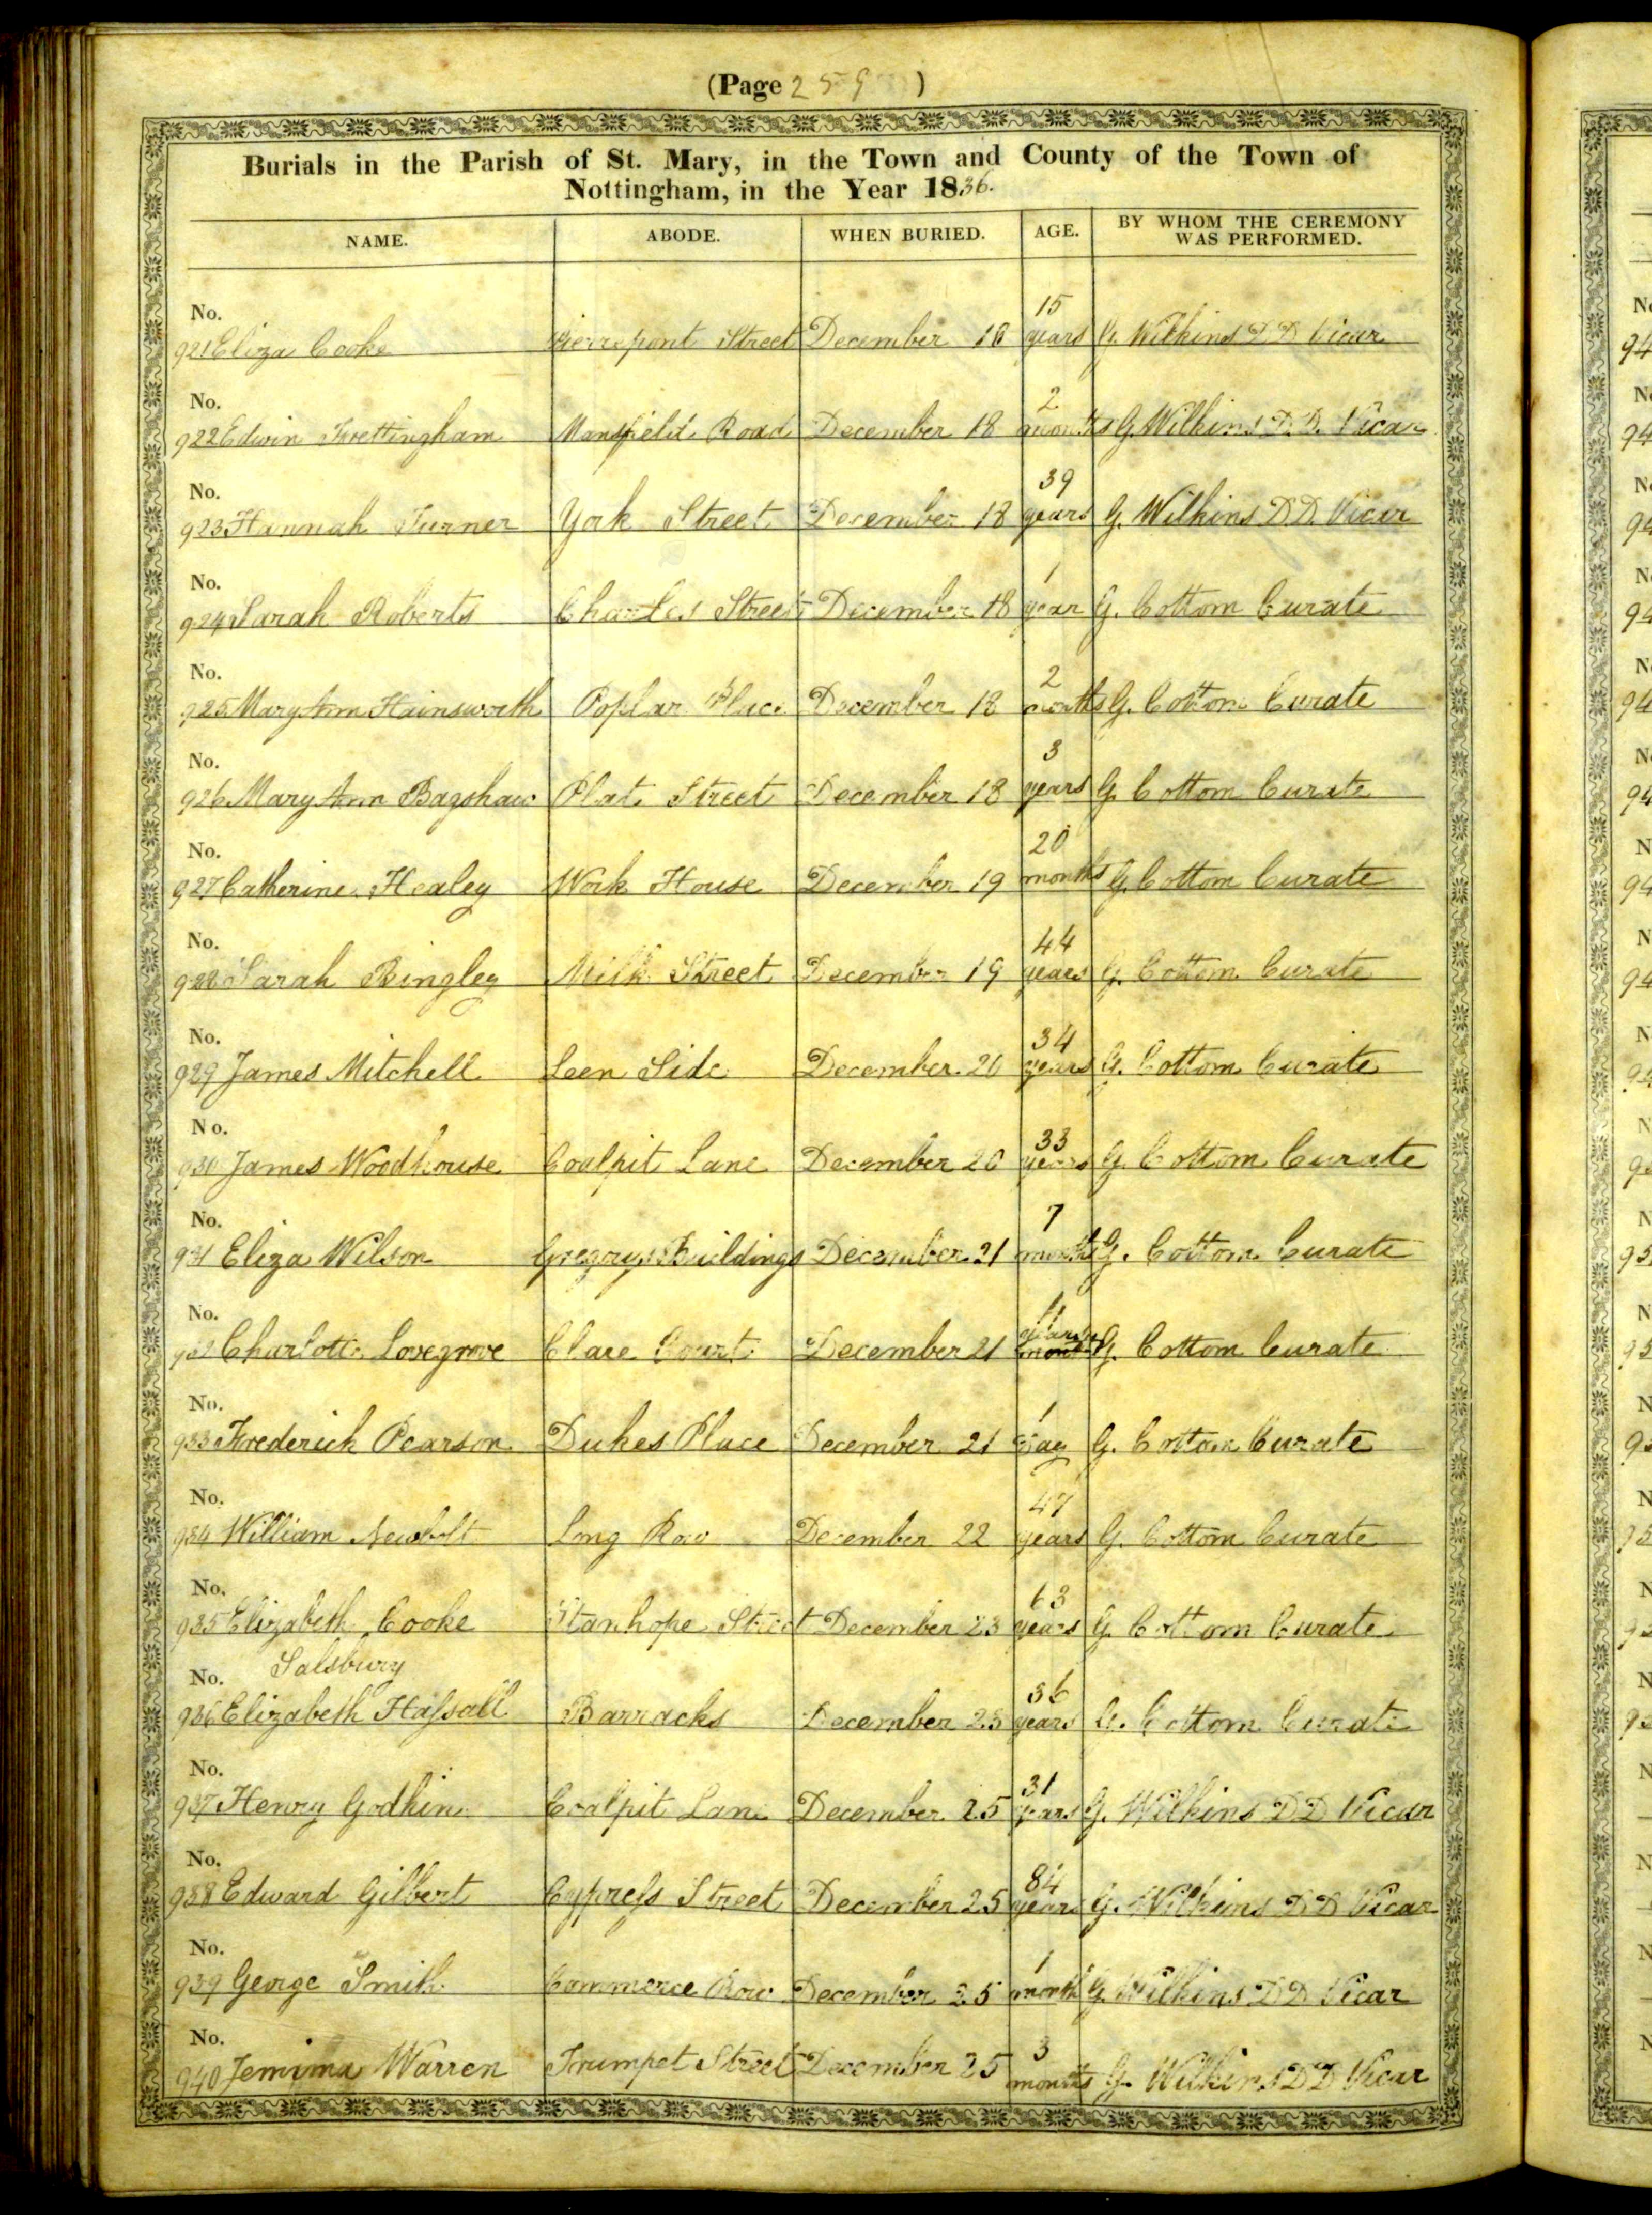 (Page 259 )
Burials in the Parish of St. Mary, in the Town and County of the Town of
Nottingham, in the Year 1836.
NAME. ABODE. WHEN BURIED. AGE. BY WHOM THE CEREMONY WAS PERFORMED.
No. 15
921 Eliza Cooke Pierrepont Street December 18 years G. Wilkins D D Vicar
No. 2
922 Edwin Frettingham Mansfield Road December 18 months G. Wilkins D. D. Vicar
No. 39
923 Hannah Turner York Street December 18 years G. Wilkins D. D. Vicar
No. 1
924 Sarah Roberts Charles Street December 18 year G. Cottom Curate
No. 2
925 Mary Ann Hainsworth Poplar Place December 18 months G. Cottom Curate
No. 3
926 Mary Ann Bagshaw Plat Street December 18 years G. Cottom Curate
No. 20
927 Catherine Healey Work House December 19 months G. Cottom Curate
No. 44
928 Sarah Bingley Milk Street December 19 years G. Cottom Curate
No. 34
929 James Mitchell Leen Side December 20 years G. Cottom Curate
No. 33
930 James Woodhouse Coalpit Lane December 20 years G. Cottom Curate
No. 7
931 Eliza Wilson Gregorys Buildings December 21 months G. Cottom Curate
No. 11
932 Charlotte Lovegrove Clare Court December 21 years G. Cottom Curate
No. 1
933 Frederick Pearson Dukes Place December 21 day G. Cottom Curate
No. 47
934 William Newbolt Long Row December 22 years G. Cottom Curate
No. 63
935 Elizabeth Cooke Stanhope Street December 23 years G. Cottom Curate
No. Salsbury 36
936 Elizabeth Hassall Barracks December 23 years G. Cottom Curate
No. 31
937 Henry Godkin Coalpit Lane December 25 years G. Wilkins D D Vicar
No. 84
938 Edward Gilbert Cypress Street December 25 years G. Wilkins D D Vicar
No. 1
939 George Smith Commerce Row December 25 month G. Wilkins D D Vicar
No. 3
940 Jemima Warren Trumpet Street December 25 months G. Wilkins D D Vicar